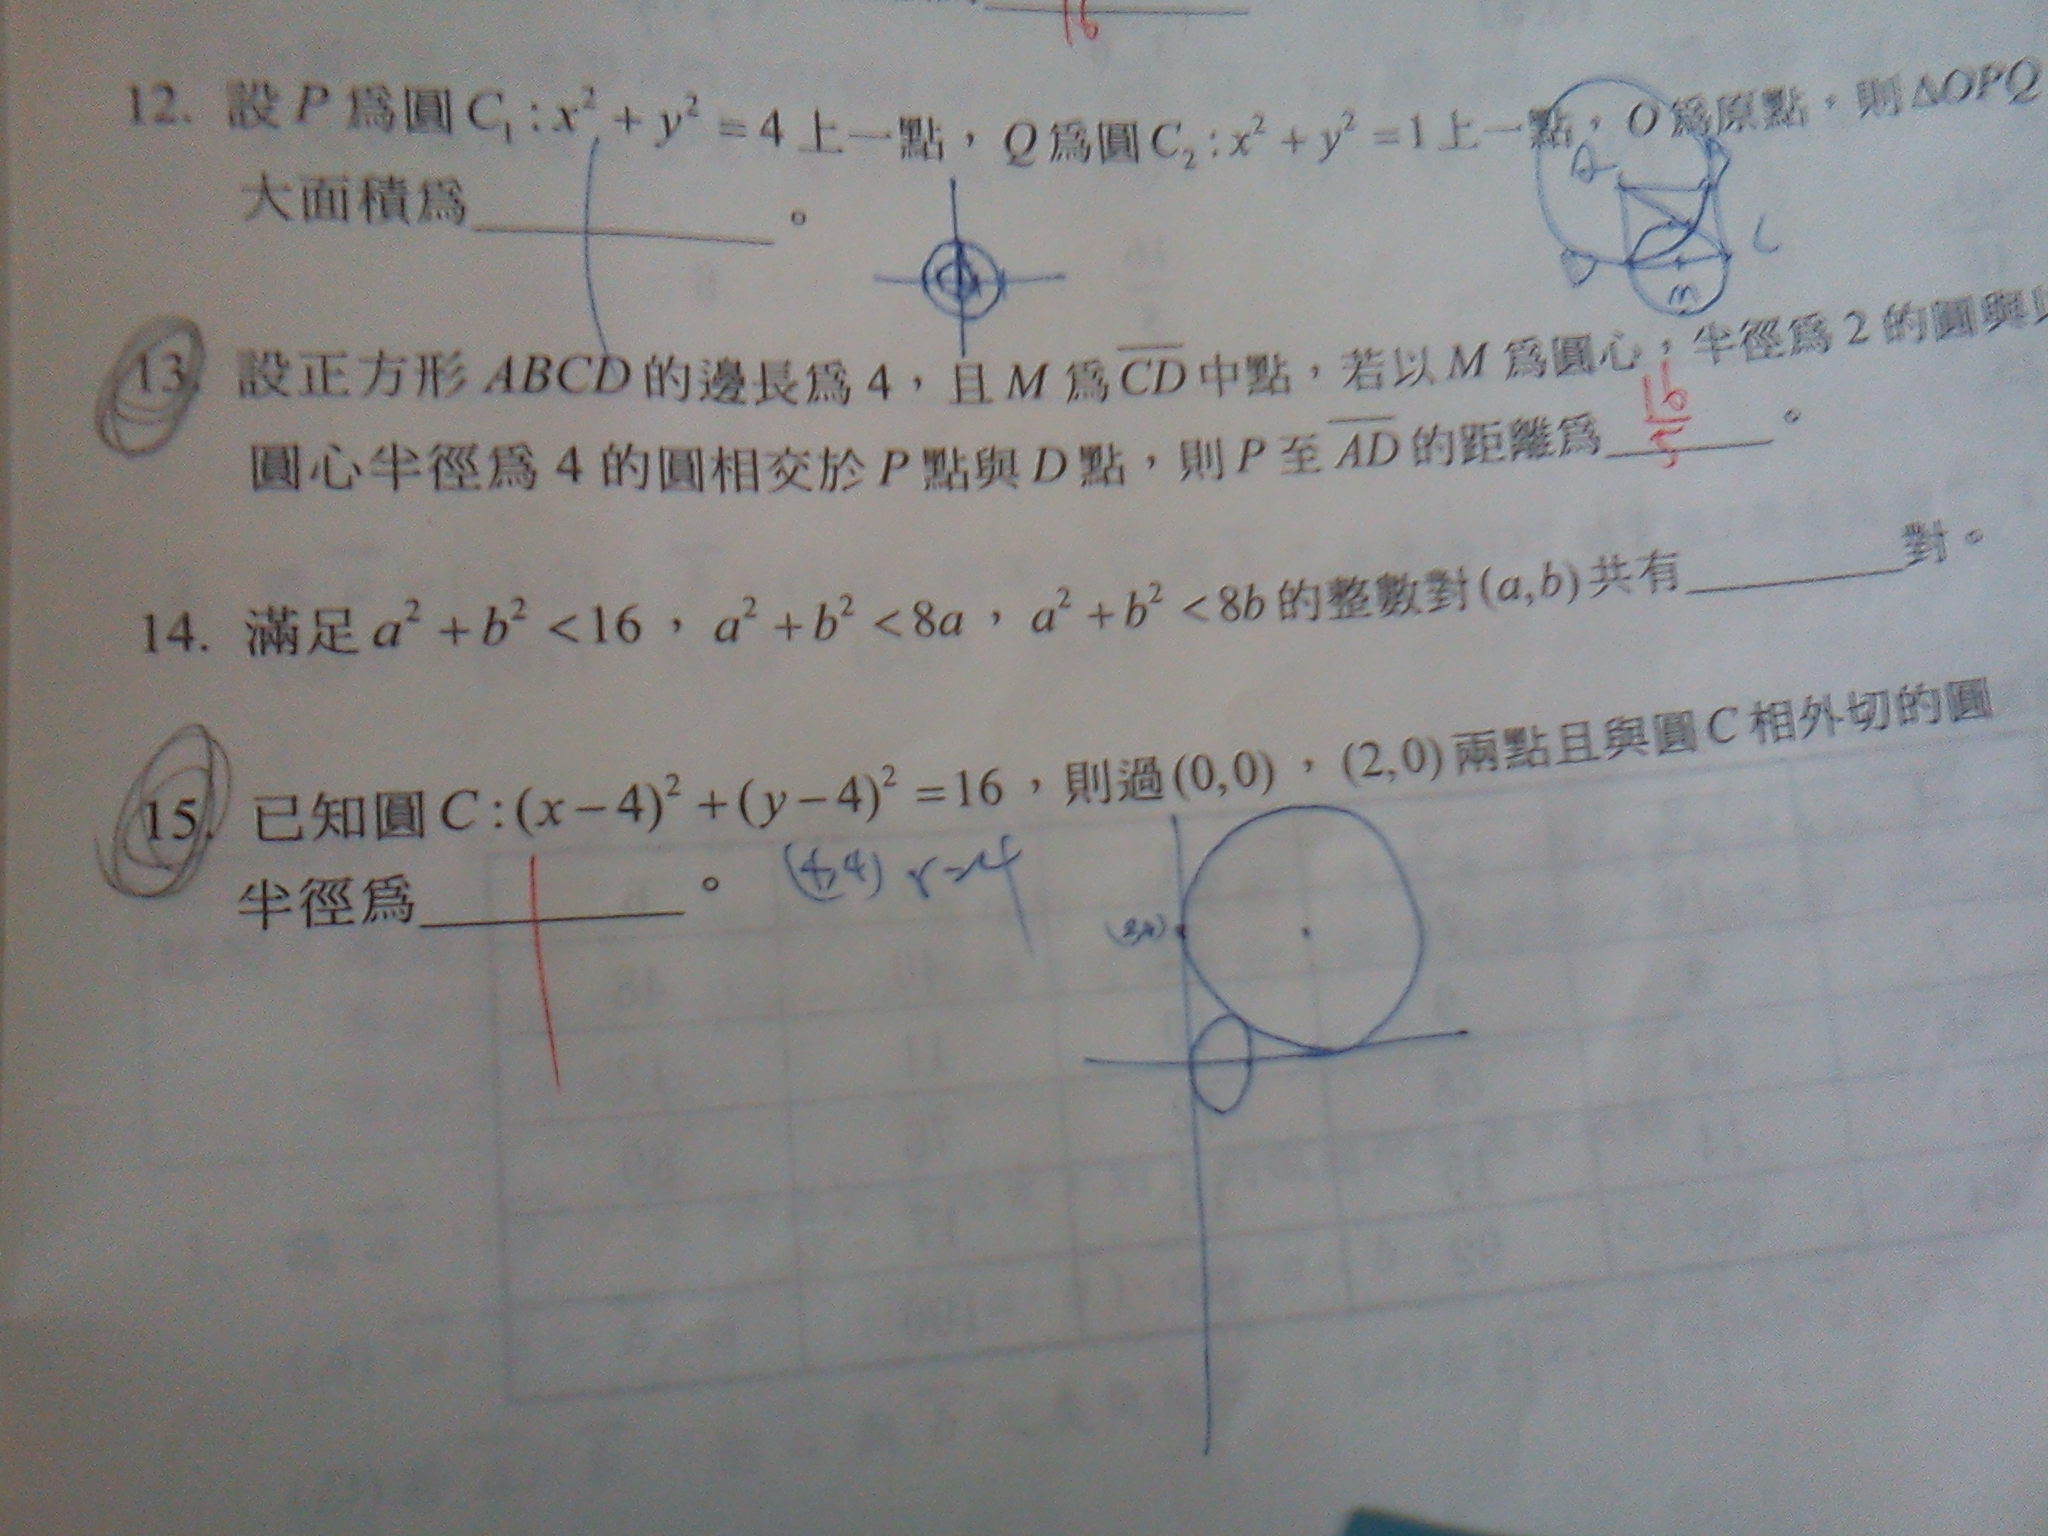 16
12. 設P為圓C₁:x²+y²=4上一點，Q為圓C₂:x²+y²=1上一點，O為原點，則ΔOPQ
大面積為＿＿＿。
1
13. 設正方形ABCD的邊長為4，且M為CD中點，若以M為圓心，半徑為2的圓與以
圓心半徑為4的圓相交於P點與D點，則P至AD的距離為 16/5 。
14. 滿足a²+b²<16，a²+b²<8a，a²+b²<8b的整數對(a,b)共有＿＿＿對。
15. 已知圓C:(x-4)²+(y-4)²=16，則過(0,0)，(2,0)兩點且與圓C相外切的圓
半徑為＿＿＿。 (4,4) r=4